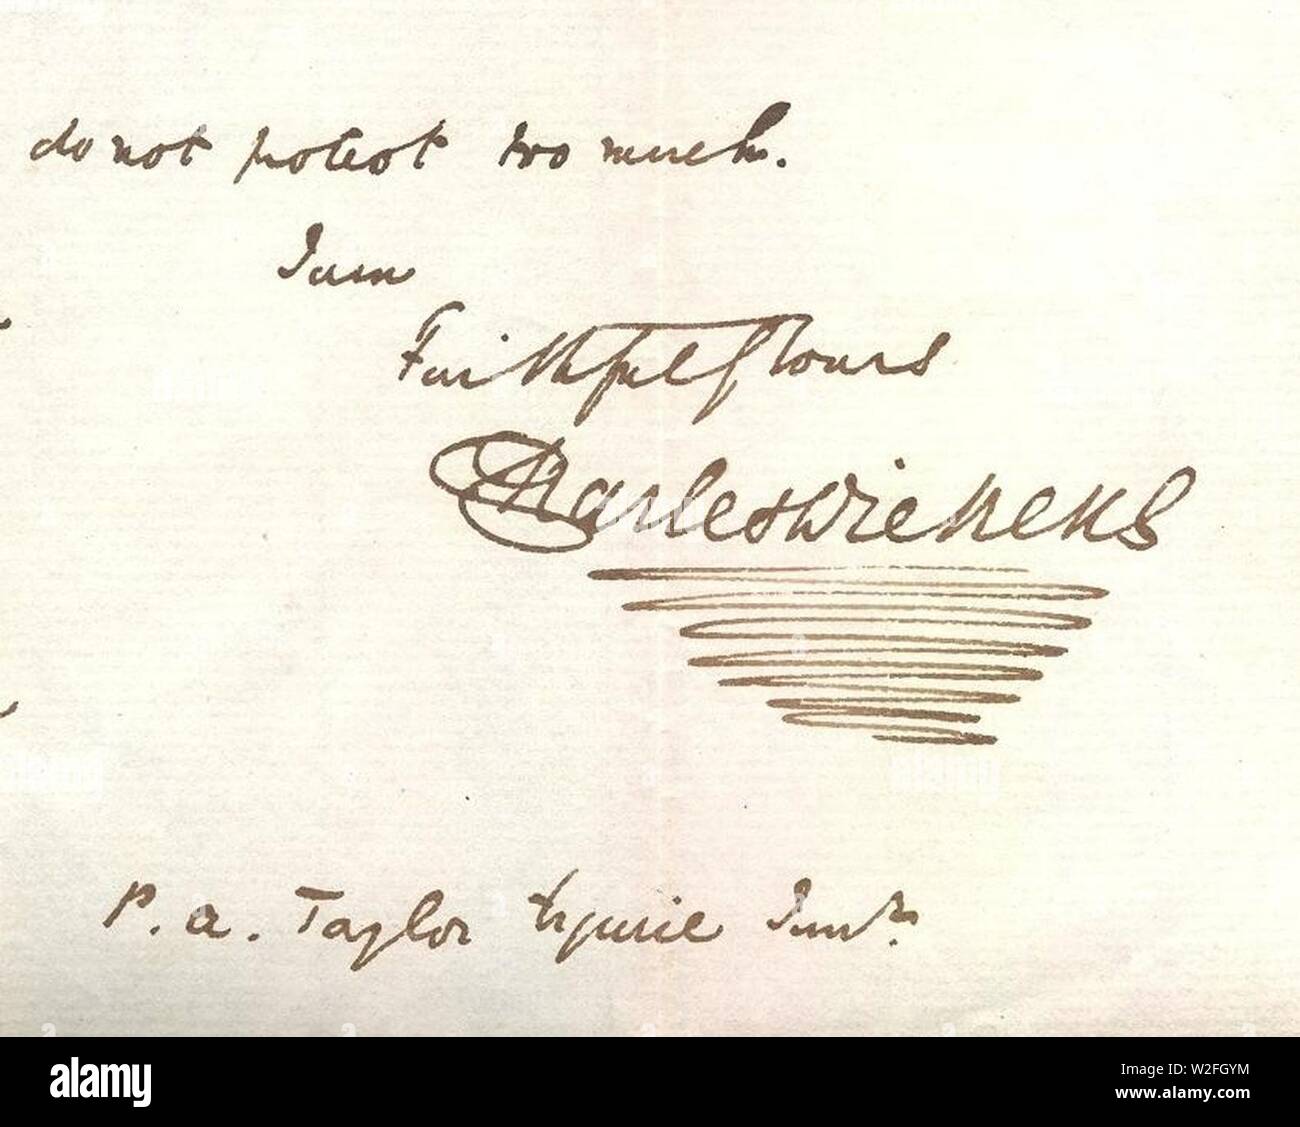 do not protest too much.
I am
Faithfully Yours
Charles Dickens
P. A. Taylor Esquire Junr.
alamy
Image ID: W2FGYM
www.alamy.com